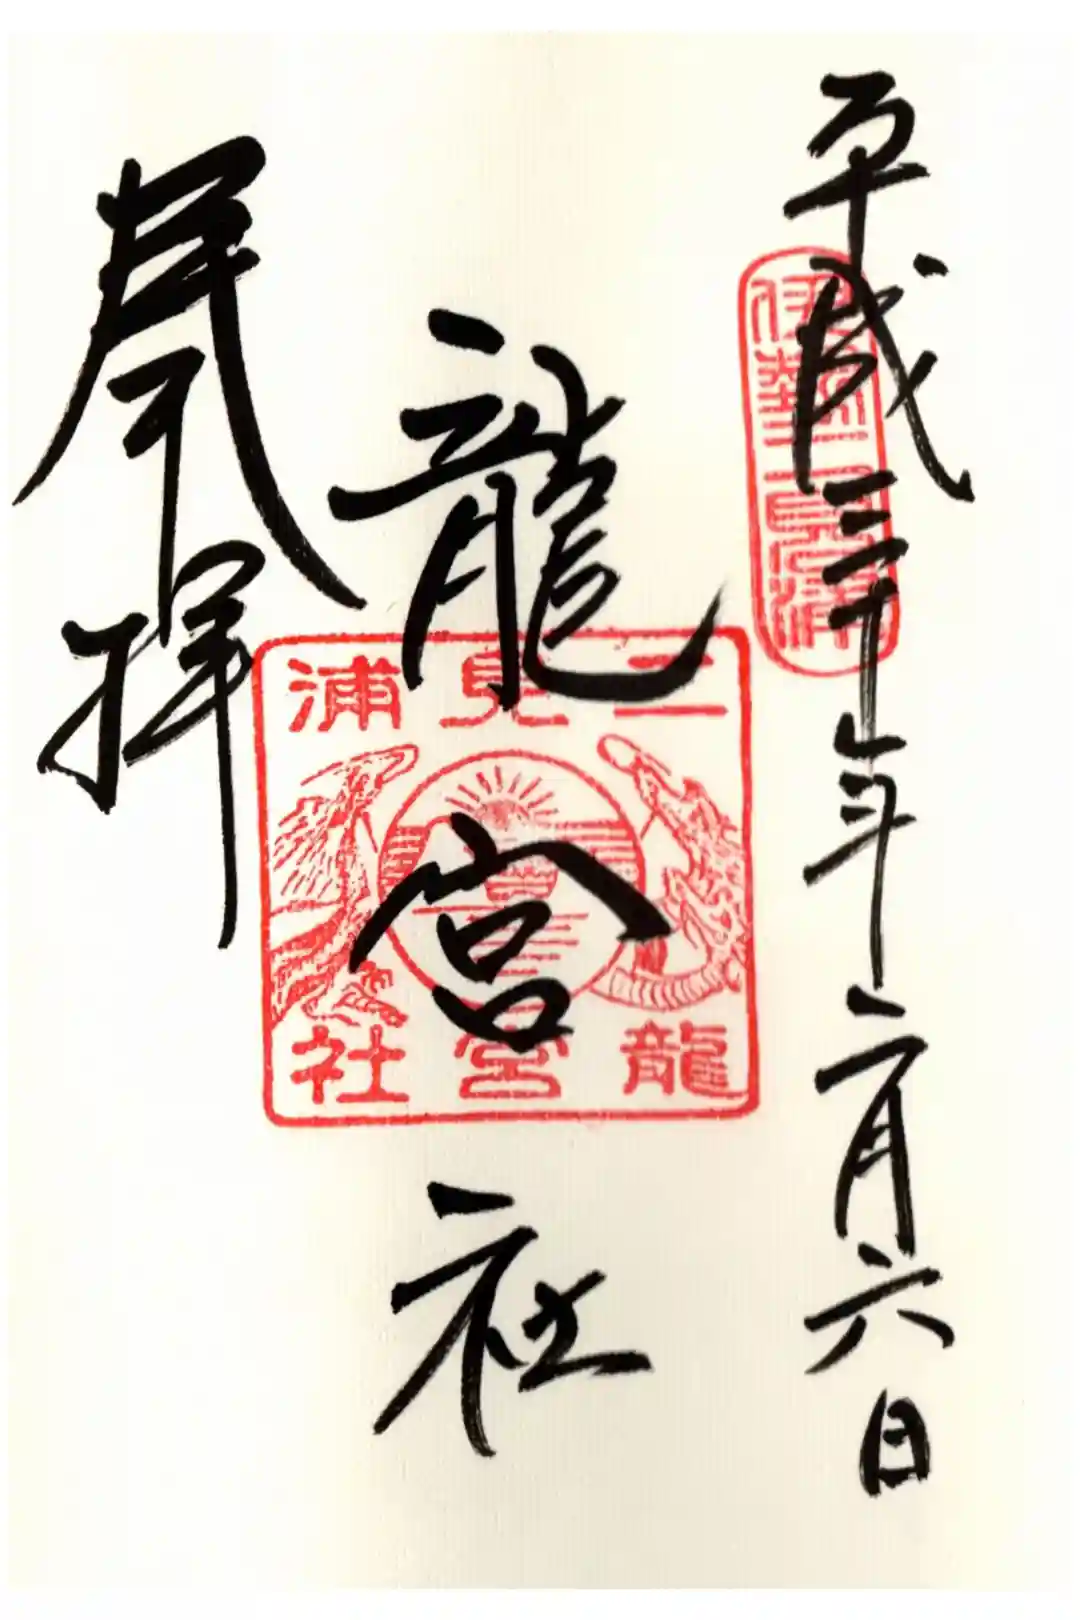 平成三十年二月六日
伊勢二見浦
龍宮社
二見浦
龍宮社
奉拝